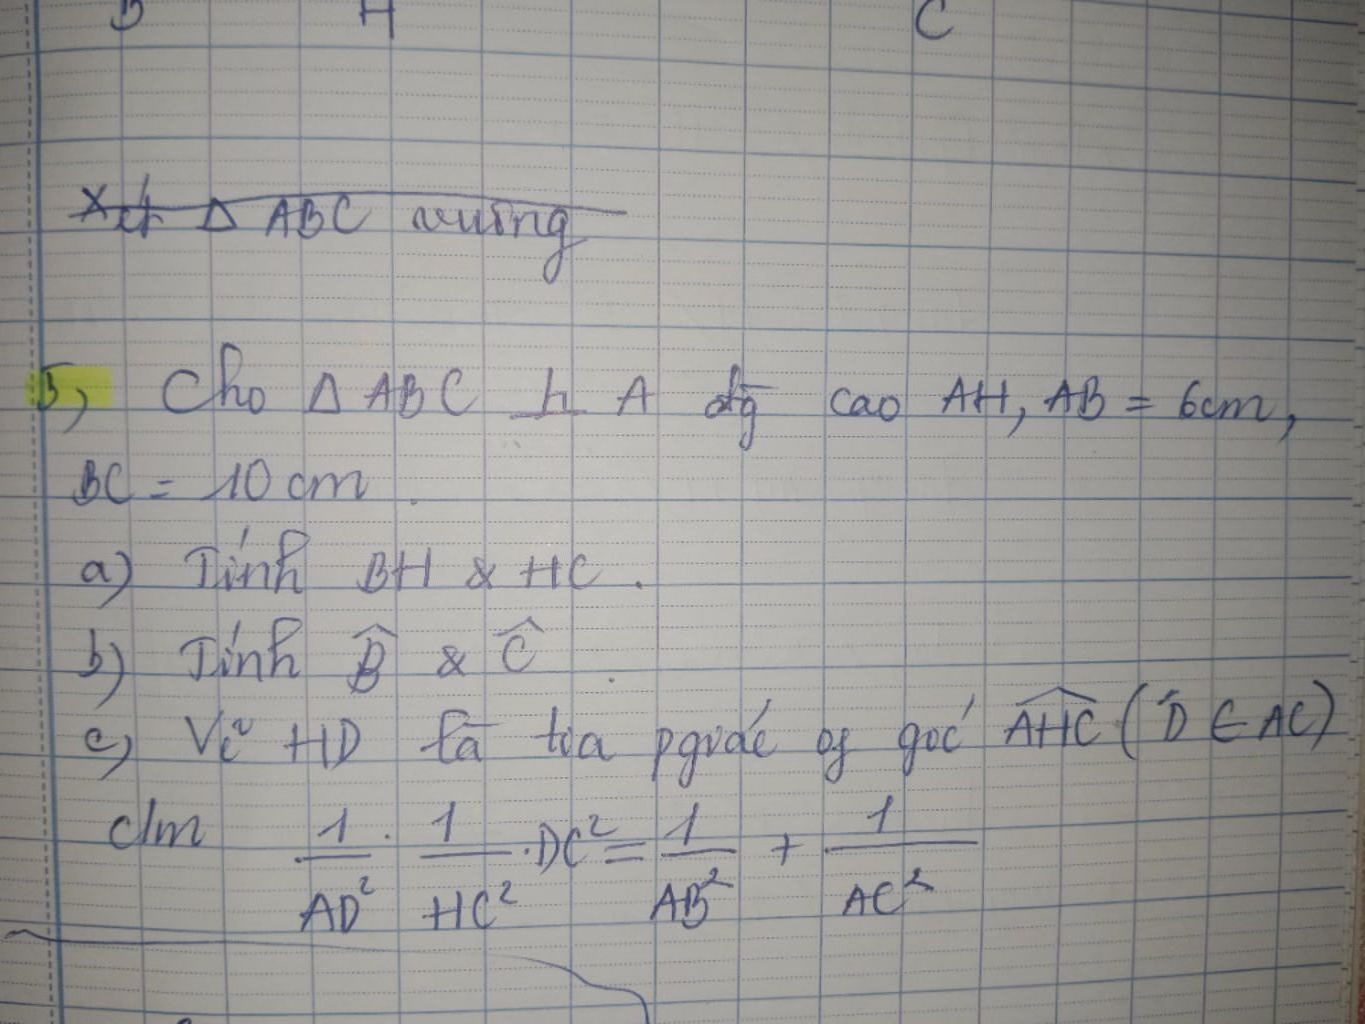 B H C
Xét Δ ABC vuông
5, Cho Δ ABC ⊥ A đg cao AH, AB = 6cm,
BC = 10 cm.
a) Tính BH & HC.
b) Tính B̂ & Ĉ
c) Vẽ HD là tia pgiác of góc AHC (D ∈ AC)
c/m 1/AD² · 1/HC² · DC² = 1/AB² + 1/AC²